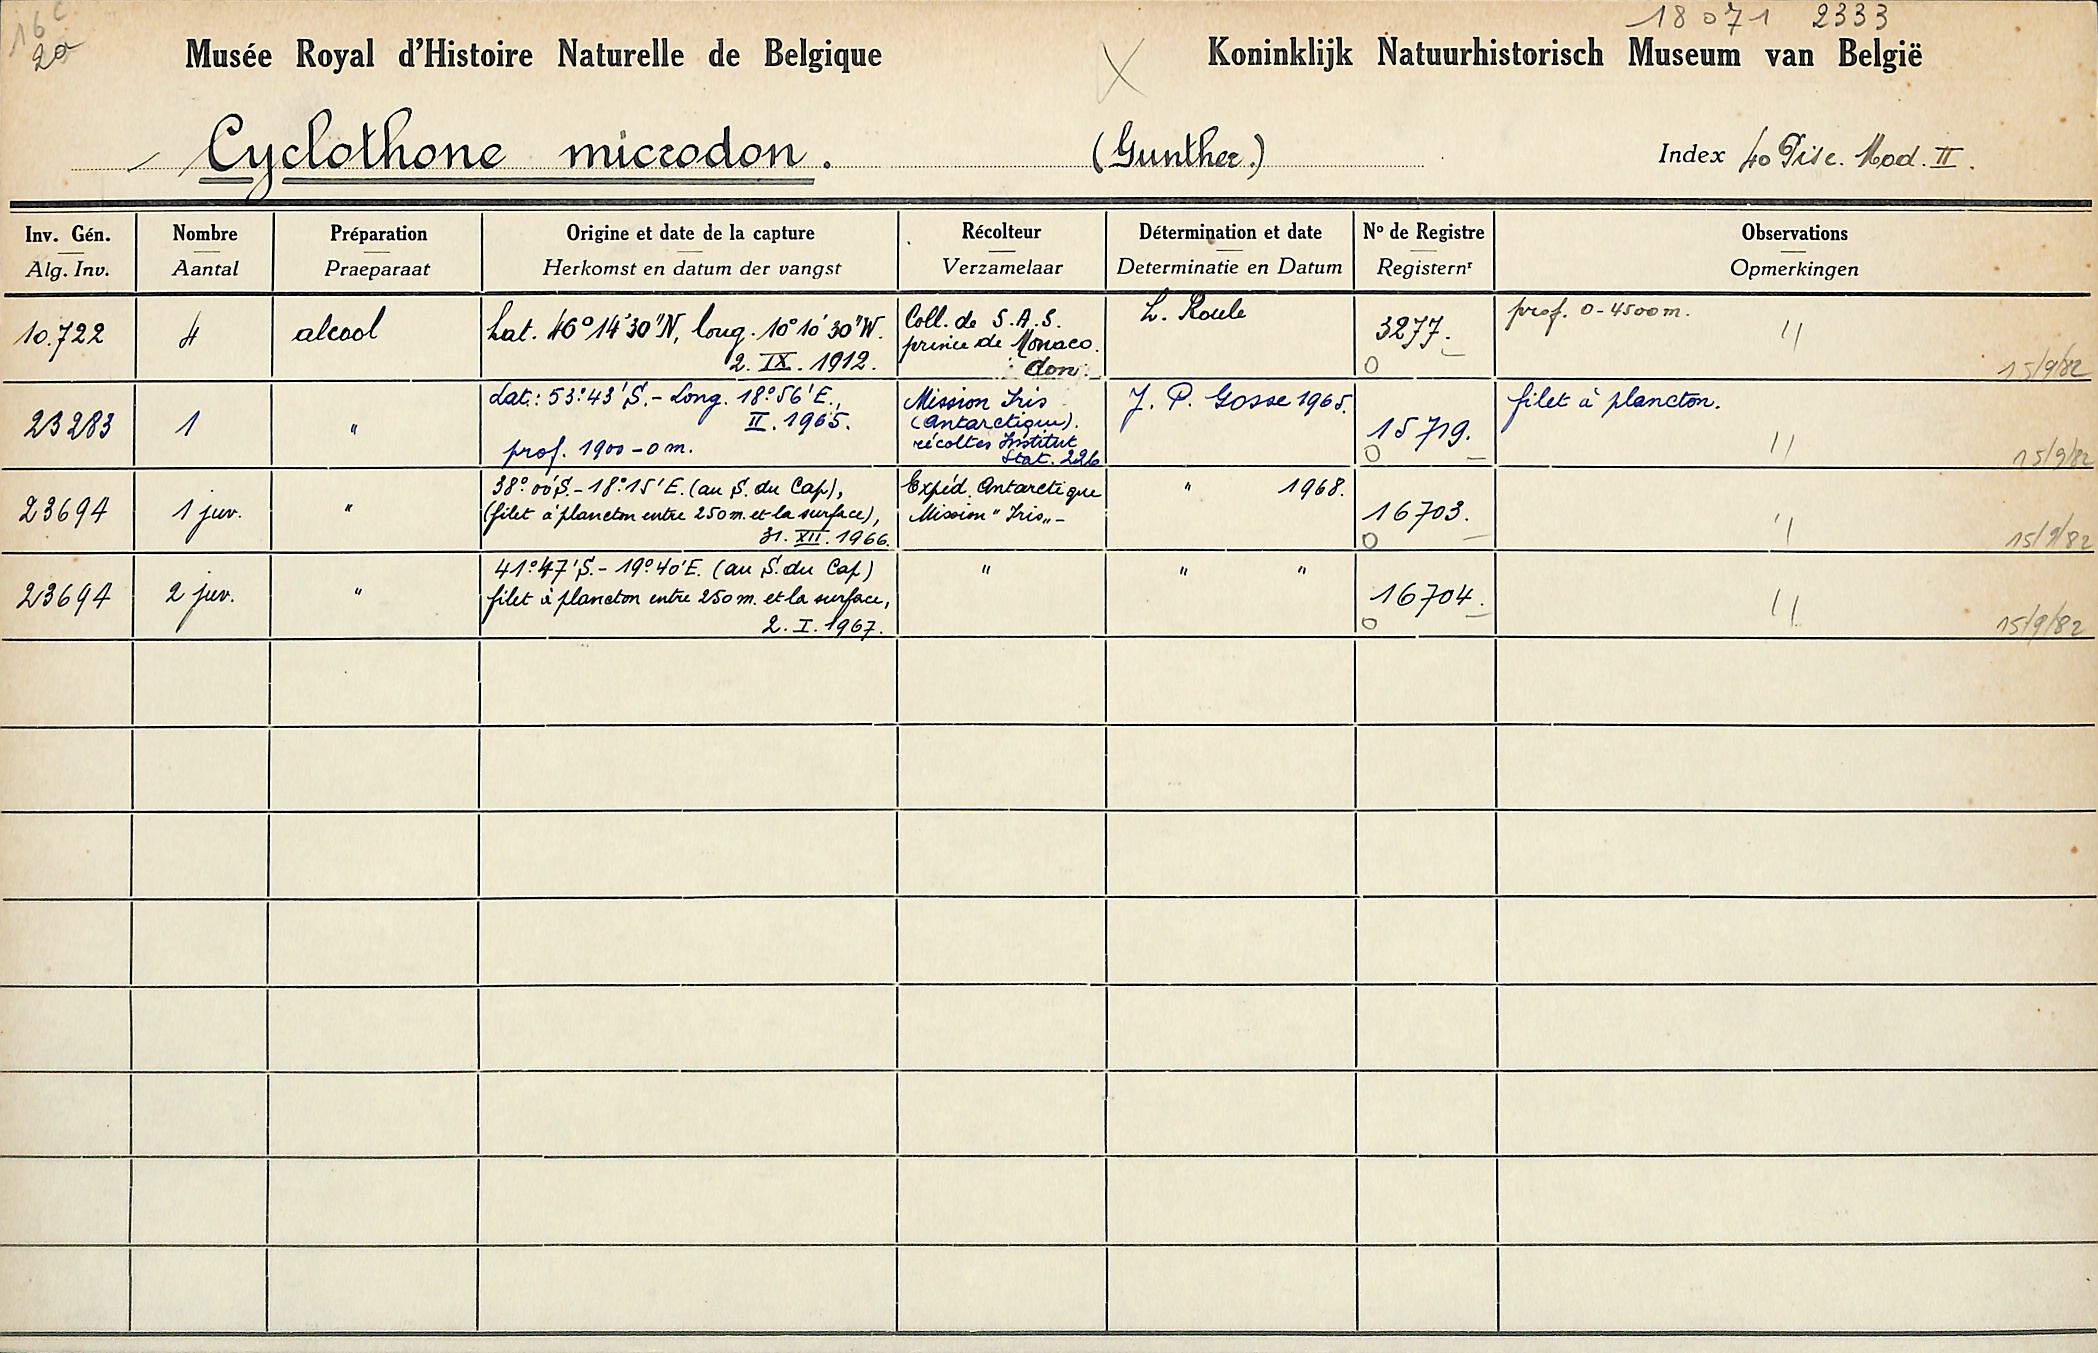 16c 18071 2333
20
Musée Royal d'Histoire Naturelle de Belgique X Koninklijk Natuurhistorisch Museum van België
Cyclothone microdon. (Gunther.) Index 40 Pisc. Mod. II.
Inv. Gén. Nombre Préparation Origine et date de la capture Récolteur Détermination et date No de Registre Observations
Alg. Inv. Aantal Praeparaat Herkomst en datum der vangst Verzamelaar Determinatie en Datum Registernr Opmerkingen
10.722 4 alcool Lat. 46°14'30"N, long. 10°10'30"W. 2. IX. 1912. Coll. de S.A.S. prince de Monaco. don. L. Roule 3277. O prof. 0-4500m. 11 15/9/82
23283 1 " Lat.: 53°43'S.- Long. 18°56'E., II. 1965. prof. 1900-0m. Mission Iris (Antarctique). récoltes Institut Stat. 226 J. P. Gosse 1965. 15719. O filet à plancton. 11 15/9/82
23694 1 juv. " 38°00'S.-18°15'E. (au S. du Cap), (filet à plancton entre 250m. et la surface), 31. XII. 1966. Expéd. Antarctique Mission "Iris"- " 1968. 16703. O 11 15/9/82
23694 2 juv. " 41°47'S.-19°40'E. (au S. du Cap) filet à plancton entre 250m. et la surface, 2. I. 1967. " " " 16704. O 11 15/9/82